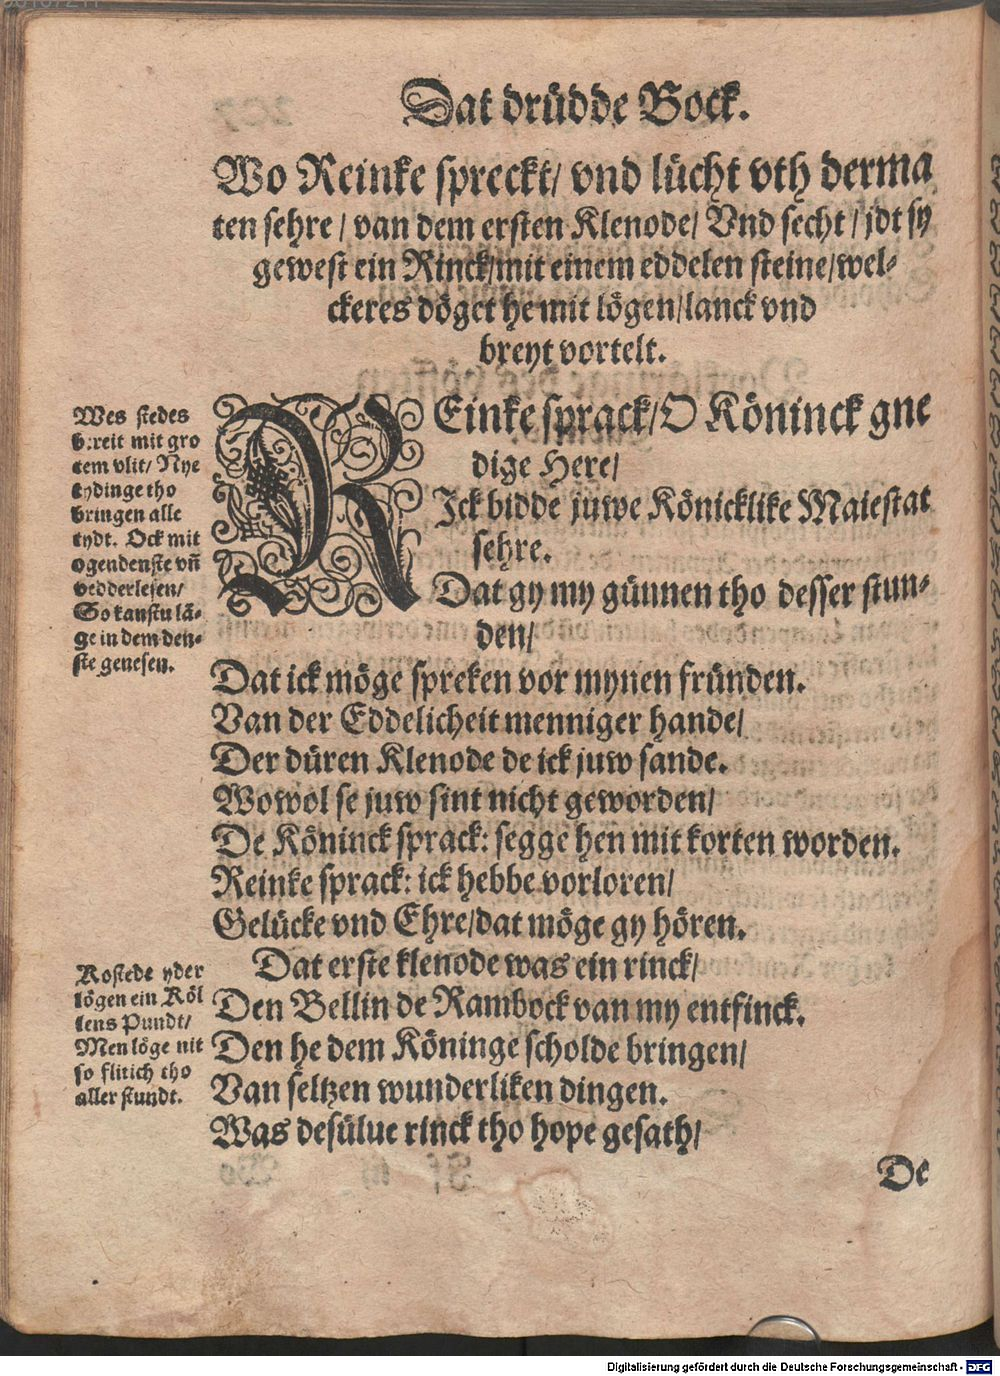 Dat drüdde Bock.
Wo Reinke spreckt/ vnd lücht vth derma
ten sehre/ van dem ersten Klenode/ Vnd secht/ jdt sy
gewest ein Rinck/mit einem eddelen steine/wel-
ckeres döget he mit lögen/lanck vnd
breyt vortelt.
Wes stedes
bereit mit gro
tem vlit/ Nye
tydinge tho
bringen alle
tydt. Ock mit
ogendenste vñ
vedderlesen/
So kanstu lä-
ge in dem den-
ste genesen.
REinke sprack/O Köninck gne
dige Here/
Ick bidde juwe Könicklike Maiestat
sehre.
Dat gy my günnen tho desser stun-
den/
Dat ick möge spreken vor mynen fründen.
Van der Eddelicheit menniger hande/
Der düren Klenode de ick juw sande.
Wowol se juw sint nicht geworden/
De Köninck sprack: segge hen mit korten worden.
Reinke sprack: ick hebbe vorloren/
Gelücke vnd Ehre/dat möge gy hören.
Dat erste klenode was ein rinck/
Kostede yder
lögen ein Köl
lens Pundt/
Men löge nit
so flitich tho
aller stundt.
Den Bellin de Rambock van my entfinck.
Den he dem Köninge scholde bringen/
Van seltzen wunderliken dingen.
Was desülue rinck tho hope gesath/
De
Digitalisierung gefördert durch die Deutsche Forschungsgemeinschaft - DFG